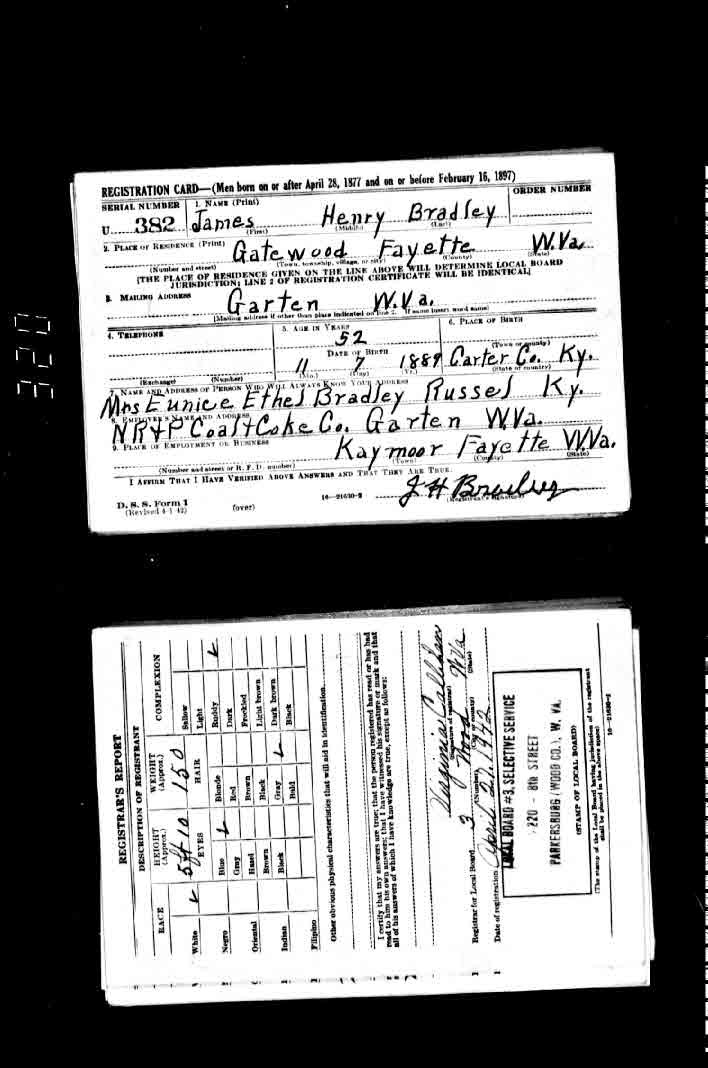 REGISTRATION CARD—(Men born on or after April 28, 1877 and on or before February 16, 1897)
SERIAL NUMBER 1. NAME (Print) ORDER NUMBER
U 382 James Henry Bradley
(First) (Middle) (Last)
2. PLACE OF RESIDENCE (Print)
Gatewood Fayette W.Va.
(Number and street) (Town, township, village, or city) (County) (State)
[THE PLACE OF RESIDENCE GIVEN ON THE LINE ABOVE WILL DETERMINE LOCAL BOARD
JURISDICTION; LINE 2 OF REGISTRATION CERTIFICATE WILL BE IDENTICAL]
3. MAILING ADDRESS
Garten W.Va.
[Mailing address if other than place indicated on line 2. If same insert word same]
4. TELEPHONE 5. AGE IN YEARS 6. PLACE OF BIRTH
52
DATE OF BIRTH (Town or county)
11 7 1889 Carter Co. Ky.
(Exchange) (Number) (Mo.) (Day) (Yr.) (State or country)
7. NAME AND ADDRESS OF PERSON WHO WILL ALWAYS KNOW YOUR ADDRESS
Mrs Eunice Ethel Bradley Russel Ky.
8. EMPLOYER'S NAME AND ADDRESS
NR&P Coal & Coke Co. Garten W.Va.
9. PLACE OF EMPLOYMENT OR BUSINESS
Kaymoor Fayette W.Va.
(Number and street or R. F. D. number) (Town) (County) (State)
I AFFIRM THAT I HAVE VERIFIED ABOVE ANSWERS AND THAT THEY ARE TRUE.
D. S. S. Form 1
(Revised 4-1-42) (over) 16—21630-2 J H Bradley
(Registrant's signature)
320
REGISTRAR'S REPORT
DESCRIPTION OF REGISTRANT
RACE HEIGHT (Approx.) WEIGHT (Approx.) COMPLEXION
5 ft 10 150
EYES HAIR
White Blue Blonde Sallow
Light
Negro Gray Red Ruddy
Hazel Brown Dark
Oriental Brown Black Freckled
Light brown
Indian Black Gray Dark brown
Bald Black
Filipino
Other obvious physical characteristics that will aid in identification
I certify that my answers are true; that the person registered has read or has had
read to him his own answers; that I have witnessed his signature or mark and that
all of his answers of which I have knowledge are true, except as follows:
Virginia Callahan
(Signature of registrar)
Registrar for Local Board 3 Wood W.Va
(Number) (City or county) (State)
Date of registration April 27, 1942
LOCAL BOARD #3, SELECTIVE SERVICE
220 - 8th STREET
PARKERSBURG (WOOD CO.), W. VA.
(STAMP OF LOCAL BOARD)
(The stamp of the Local Board having jurisdiction of the registrant
shall be placed in the above space)
16—21630-2